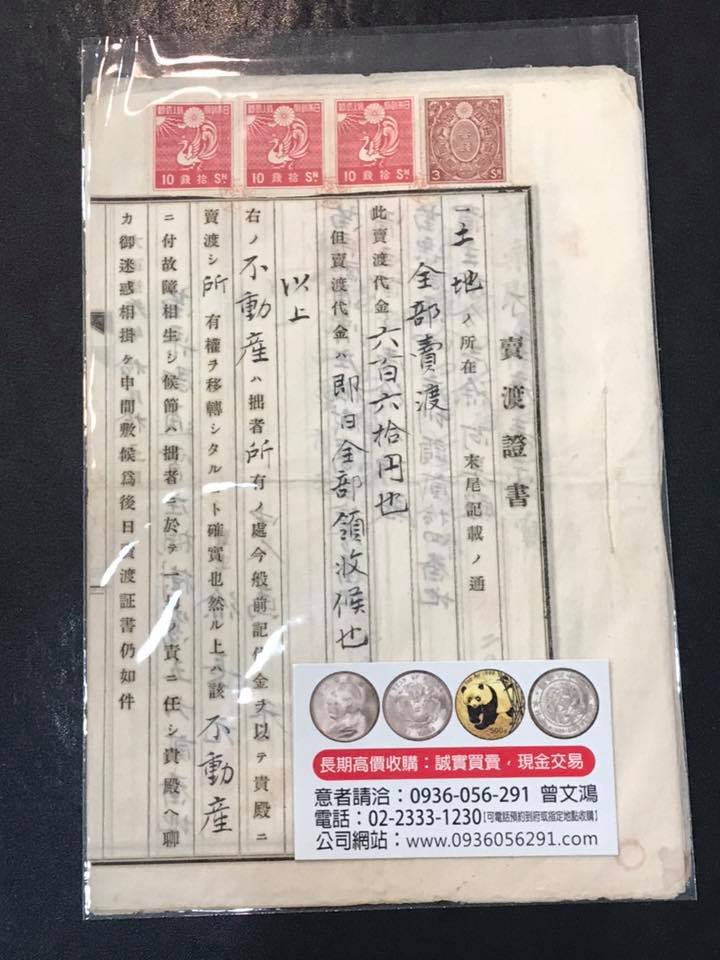 10 錢拾 SN.
10 錢拾 SN.
10 錢拾 SN.
3 SN.
賣渡證書
一土地ノ所在 末尾記載ノ通
全部賣渡
此賣渡代金六百六拾円也
但賣渡代金ハ即日全部領收候也
以上
右ノ不動產ハ拙者所有ノ處今般前記代金ヲ以テ貴殿ニ
賣渡シ所有權ヲ移轉シタルコト確實也然ル上ハ該不動產
ニ付故障相生シ候節ハ拙者ニ於テ一切ノ責ニ任シ貴殿ヘ聊
カ御迷惑相掛ケ申間敷候爲後日賣渡証書仍如件
長期高價收購：誠實買賣，現金交易
意者請洽：0936-056-291 曾文鴻
電話：02-2333-1230【可電話預約到府或指定地點收購】
公司網站：www.0936056291.com